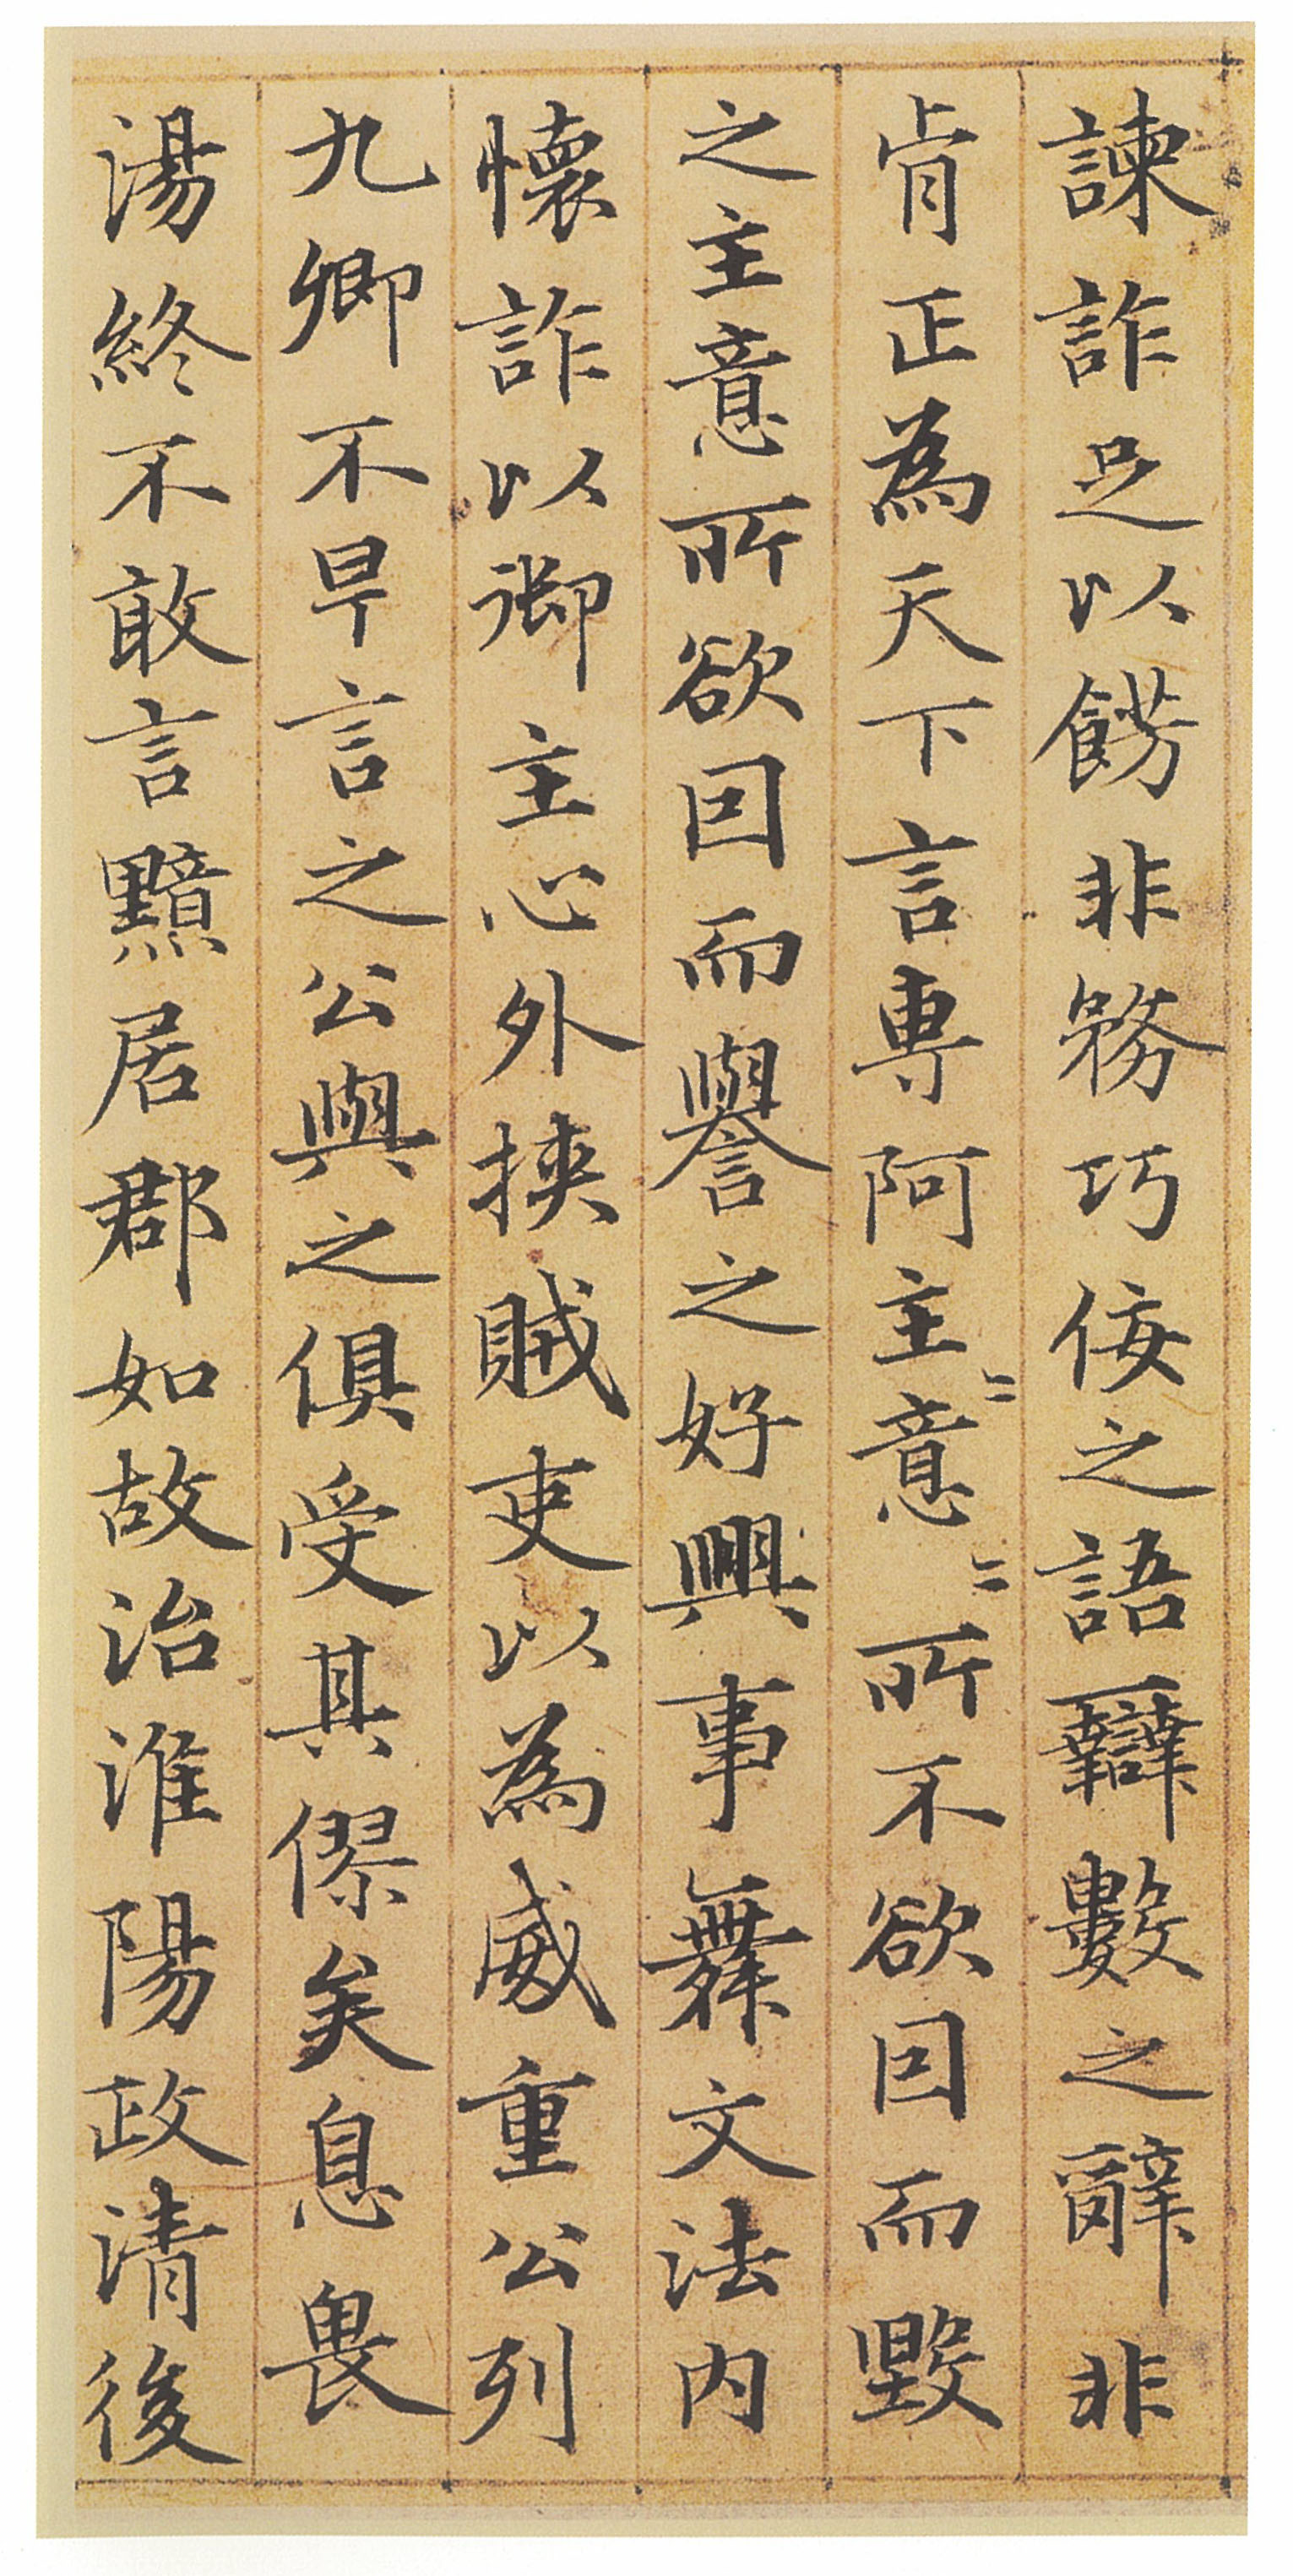 諫詐足以飾非務巧佞之語辯數之辭非
肯正為天下言專阿主〻意〻所不欲因而毀
之主意所欲因而譽之好興事舞文法内
懷詐以御主心外挾賊吏以為威重公列
九卿不早言之公與之俱受其僇矣息畏
湯終不敢言黯居郡如故治淮陽政清後